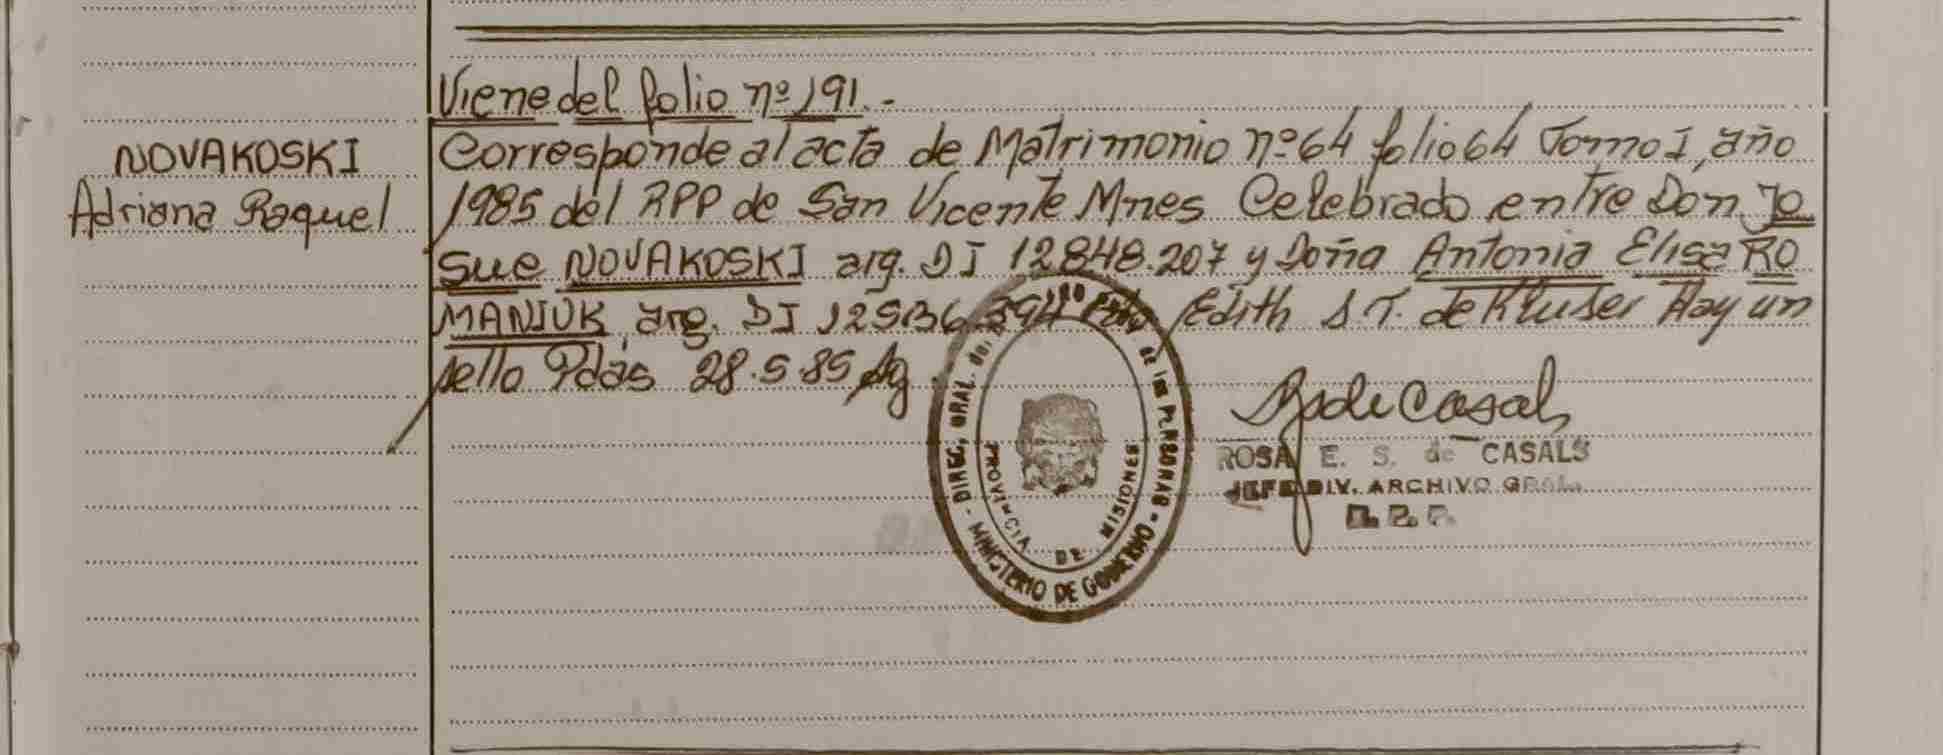 Viene del folio nº 191.-
NOVAKOSKI
Adriana Raquel
Corresponde al acta de Matrimonio nº 64 folio 64 Tomo I, año
1985 del RPP de San Vicente Mnes Celebrado entre Don Jo
sue NOVAKOSKI arg. DI 12848.207 y Doña Antonia Elisa RO
MANIUK arg. DI Edith S T. de Kluser Hay un
sello Pdas 28.5.85
DIREC. GRAL. DE LAS PERSONAS - MINISTERIO DE GOBIERNO -
PROVINCIA DE MISIONES
ROSA E. S. de CASALS
JEFE DIV. ARCHIVO GRAL.